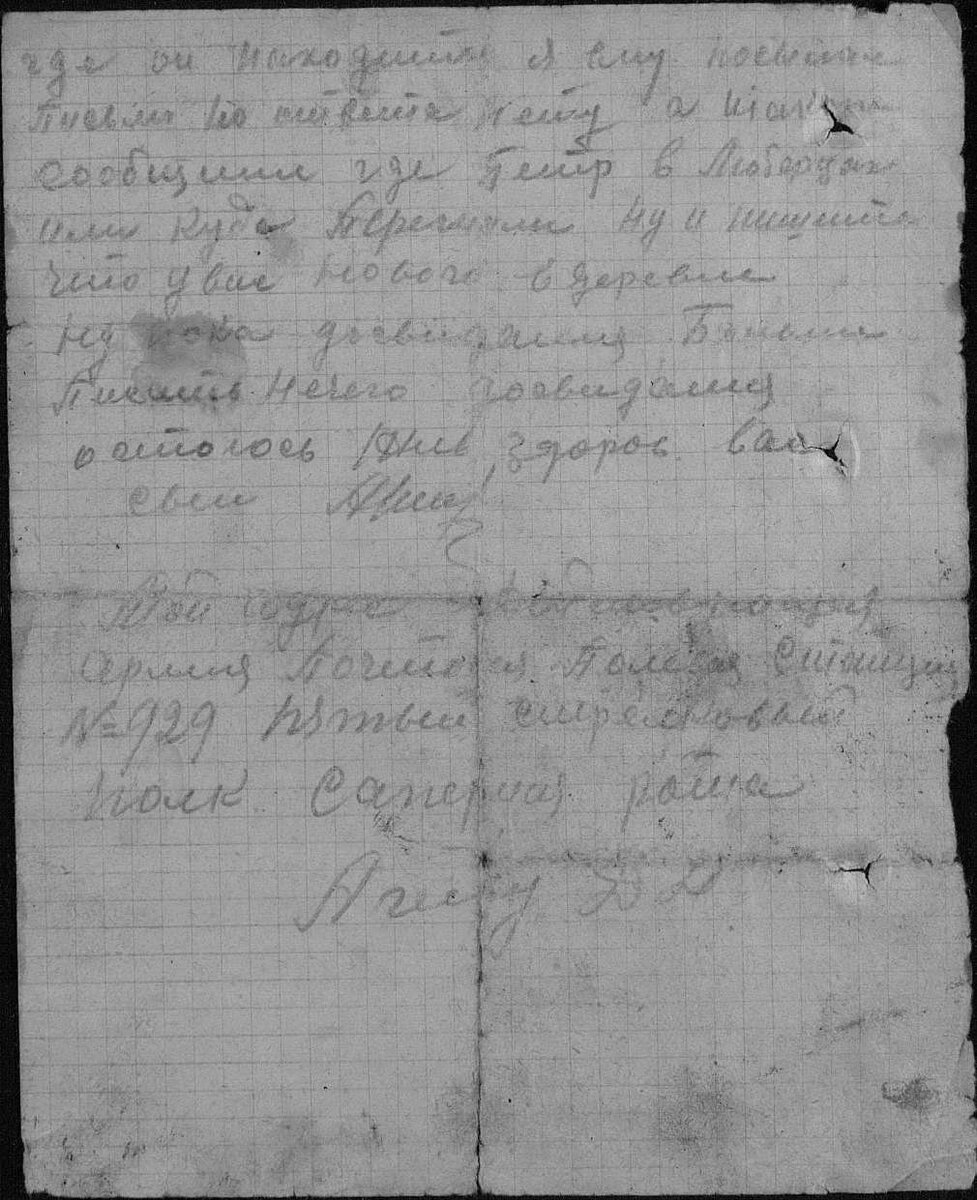 где он находится я ему посылал
письмо но ответа нету а также
сообщили где Петр в Люберцах
или куда перегнали ну и пишите
что у вас нового в деревне
ну пока досвидания Больше
писать нечего досвидания
остаюсь жив здоров ваш
сын
Мой адрес Действующая
армия Почтовая Полевая Станция
№ 929 пятый стрелковый
полк Саперная рота